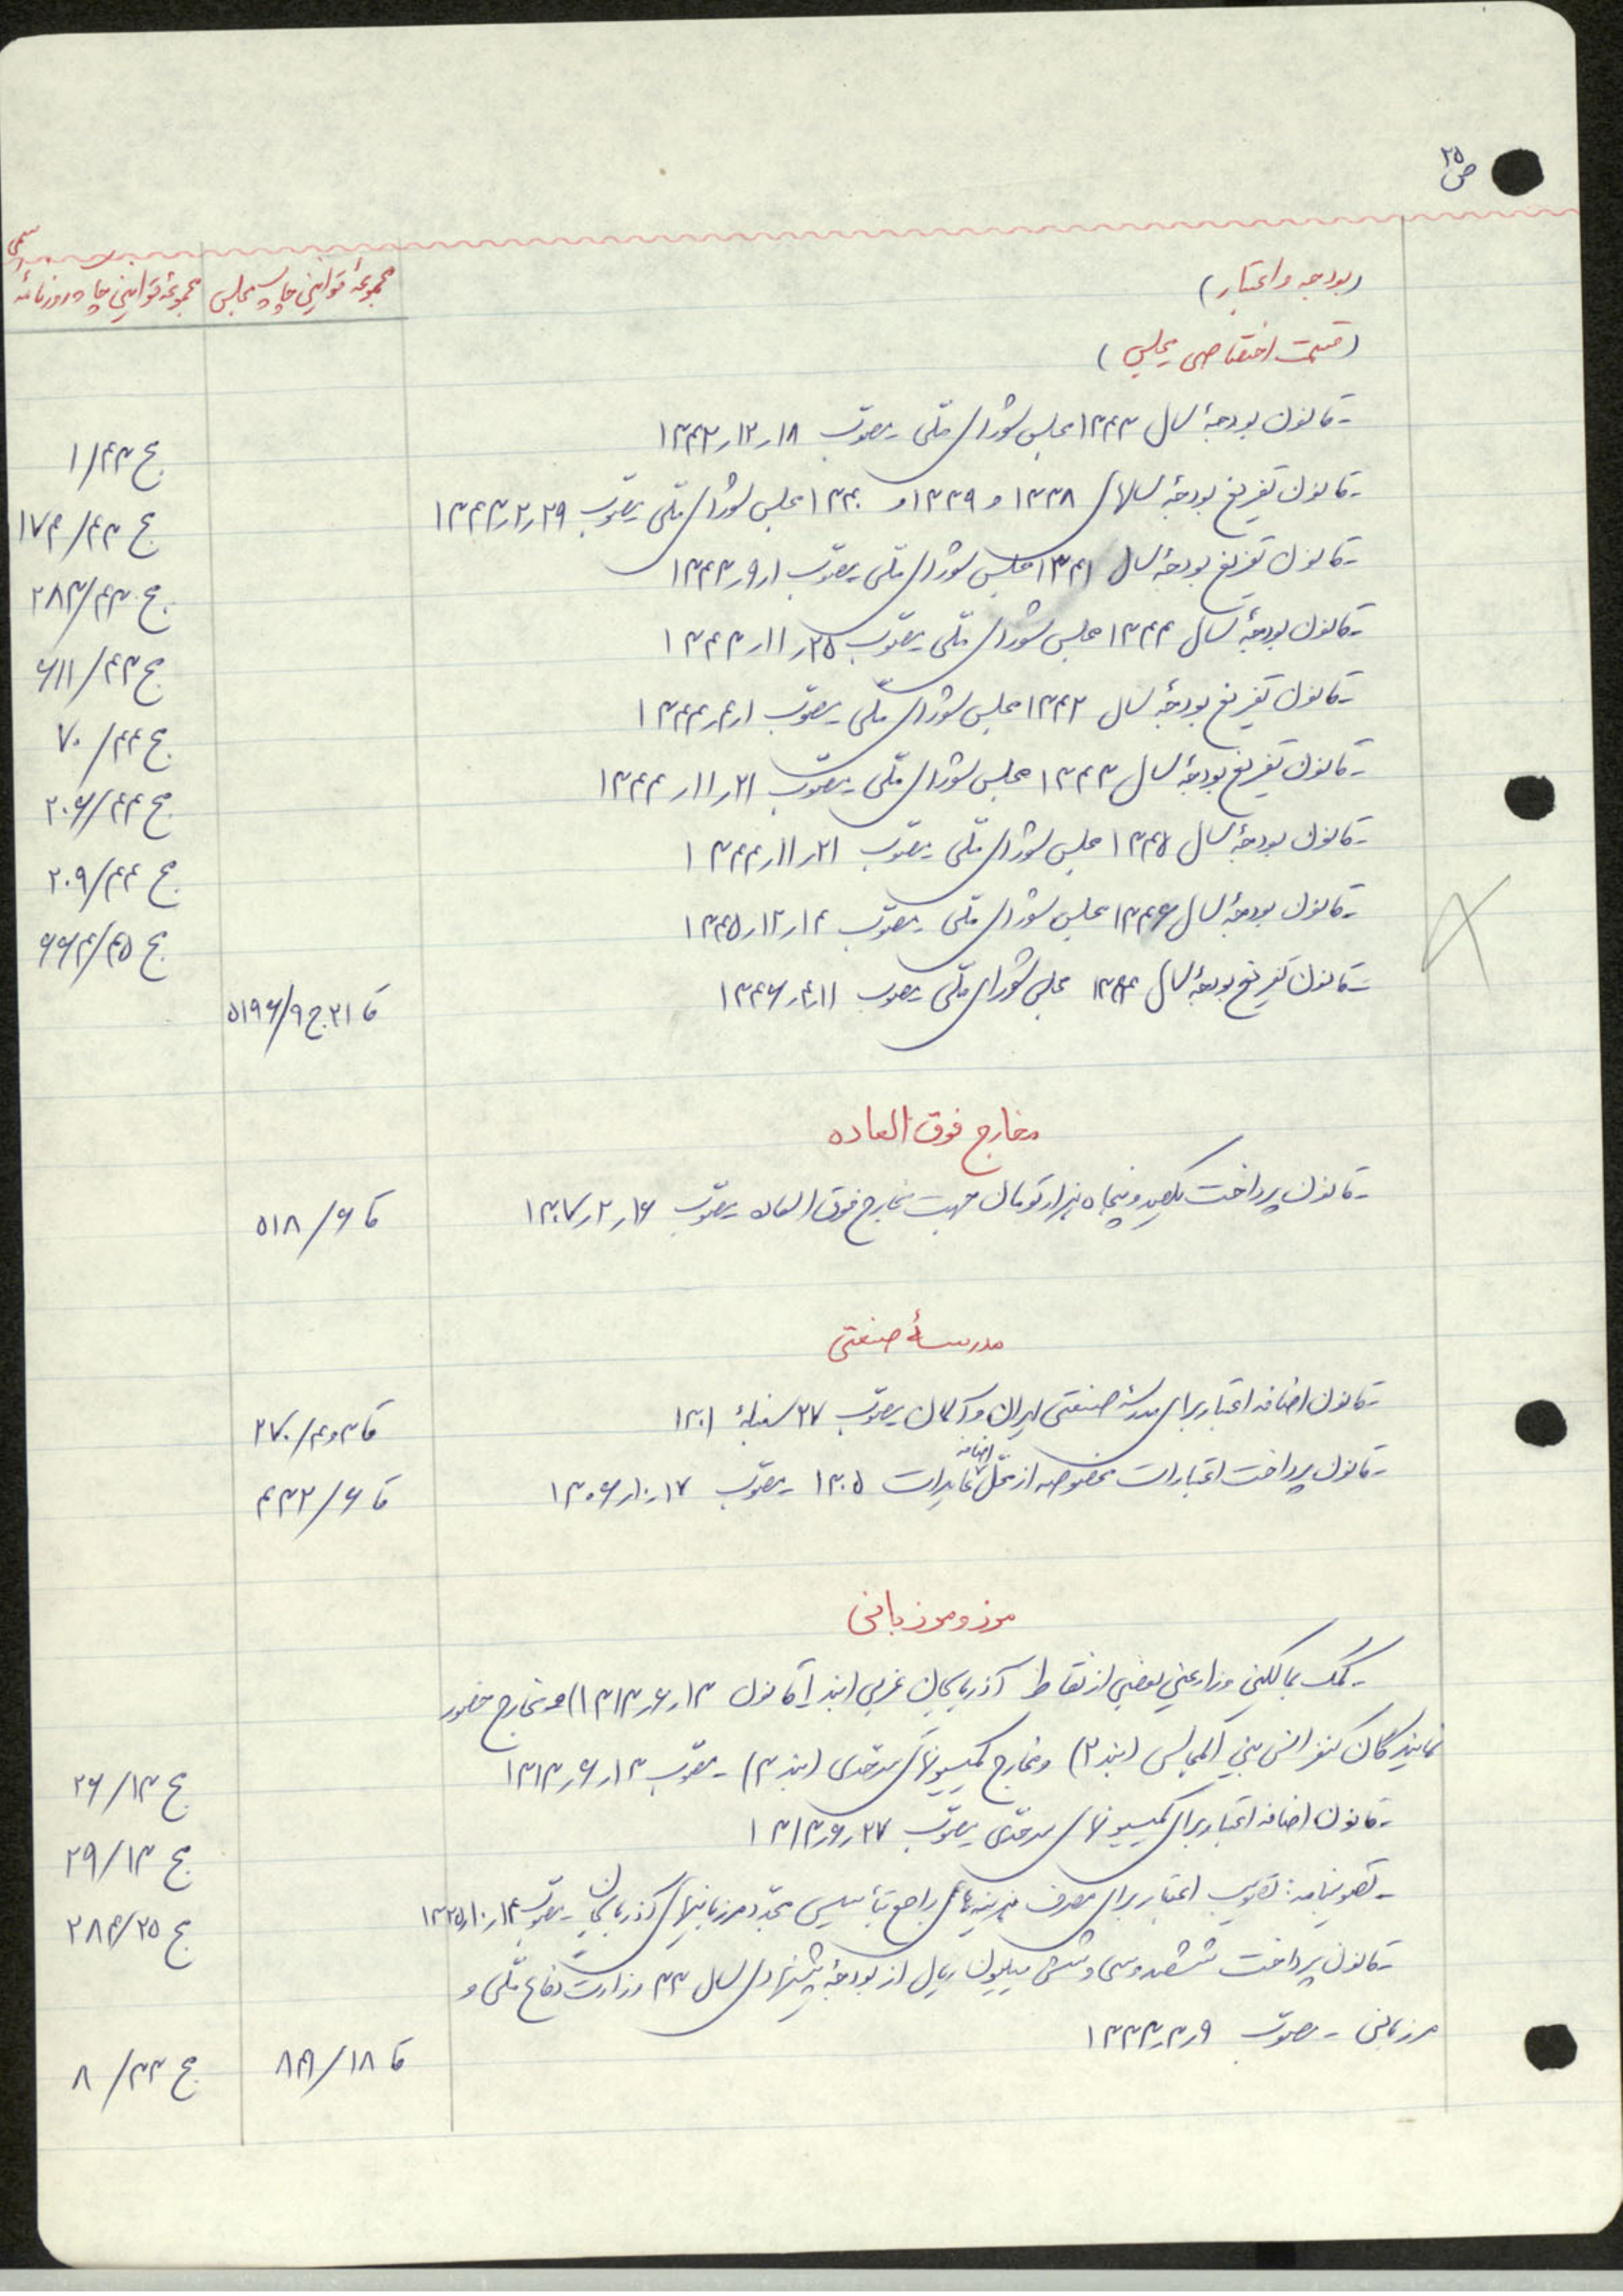 ص ۲۵
(بودجه و اعتبار)
مجموعهٔ قوانین چاپ مجلس
مجموعهٔ قوانین چاپ روزنامهٔ رسمی
(قسمت اختصاصی مجلس)
- قانون بودجهٔ سال ۱۳۴۳ مجلس شورای ملّی - مصوّب ۱۸ر۱۲ر۱۳۴۲ ج ۴۳/۱
- قانون تفریغ بودجهٔ سالهای ۱۳۳۸ و ۱۳۳۹ و ۱۳۴۰ مجلس شورای ملّی - مصوّب ۲۹ر۲ر۱۳۴۳ ج ۴۳/۱۷۴
- قانون تفریغ بودجهٔ سال ۱۳۴۱ مجلس شورای ملّی - مصوّب ۱ر۹ر۱۳۴۳ ج ۴۳/۲۸۳
- قانون بودجهٔ سال ۱۳۴۴ مجلس شورای ملّی - مصوّب ۲۵ر۱۱ر۱۳۴۳ ج ۴۳/۶۱۱
- قانون تفریغ بودجهٔ سال ۱۳۴۲ مجلس شورای ملّی - مصوّب ۱ر۴ر۱۳۴۴ ج ۴۴/۷۰
- قانون تفریغ بودجهٔ سال ۱۳۴۳ مجلس شورای ملّی - مصوّب ۲۱ر۱۱ر۱۳۴۴ ج ۴۴/۲۰۶
- قانون بودجهٔ سال ۱۳۴۵ مجلس شورای ملّی - مصوّب ۲۱ر۱۱ر۱۳۴۴ ج ۴۴/۲۰۹
- قانون بودجهٔ سال ۱۳۴۶ مجلس شورای ملّی - مصوّب ۱۴ر۱۲ر۱۳۴۵ ج ۴۵/۶۶۴
- قانون تفریغ بودجهٔ سال مجلس شورای ملّی - مصوب ۱۱ر۴ر۱۳۴۶ قا ۲۱ ج ۹/۵۱۹۶
مخارج فوق العاده
- قانون پرداخت یکصد و پنجاه هزار تومان جهت مخارج فوق العاده - مصوّب ۱۶ر۲ر۱۳۰۷ قا ۶/۵۱۸
مدرسهٔ صنعتی
- قانون اضافه اعتبار برای مدرسهٔ صنعتی ایران و آلمان - مصوّب ۲۷ سنبلهٔ ۱۳۰۱ قا ۳و۴/۲۷۰
- قانون پرداخت اعتبارات مخصوصه از محلّ اضافه عایدات ۱۳۰۵ - مصوّب ۱۷ر۱۰ر۱۳۰۶ قا ۶/۴۳۲
مرز و مرزبانی
- کمک بمالکین و زارعین بعضی از نقاط آذربایجان غربی (بند ۱ قانون ۱۳ر۶ر۱۳۱۳) و مخارج حضور
نمایندگان کنفرانس بین المجالس (بند ۲) و مخارج کمیسیونهای سرحدی (بند ۳) - مصوّب ۱۳ر۶ر۱۳۱۳ ج ۱۳/۲۶
- قانون اضافه اعتبار برای کمیسیونهای سرحدّی - مصوّب ۲۷ر۶ر۱۳۱۳ ج ۱۳/۲۹
- تصویبنامه: تصویب اعتبار برای مصرف هزینه‌های راجع بتأسیس مجدّد مرزبانیهای آذربایجان - مصوّب ۱۴ر۱۰ر۱۳۲۵ ج ۲۵/۲۸۴
- قانون پرداخت ششصد و سی و شش میلیون ریال از بودجهٔ پیشنهادی سال ۳۳ وزارت دفاع ملّی و
مرزبانی - مصوّب ۹ر۳ر۱۳۳۳ قا ۱۸/۸۴۱ ج ۳۳/۸